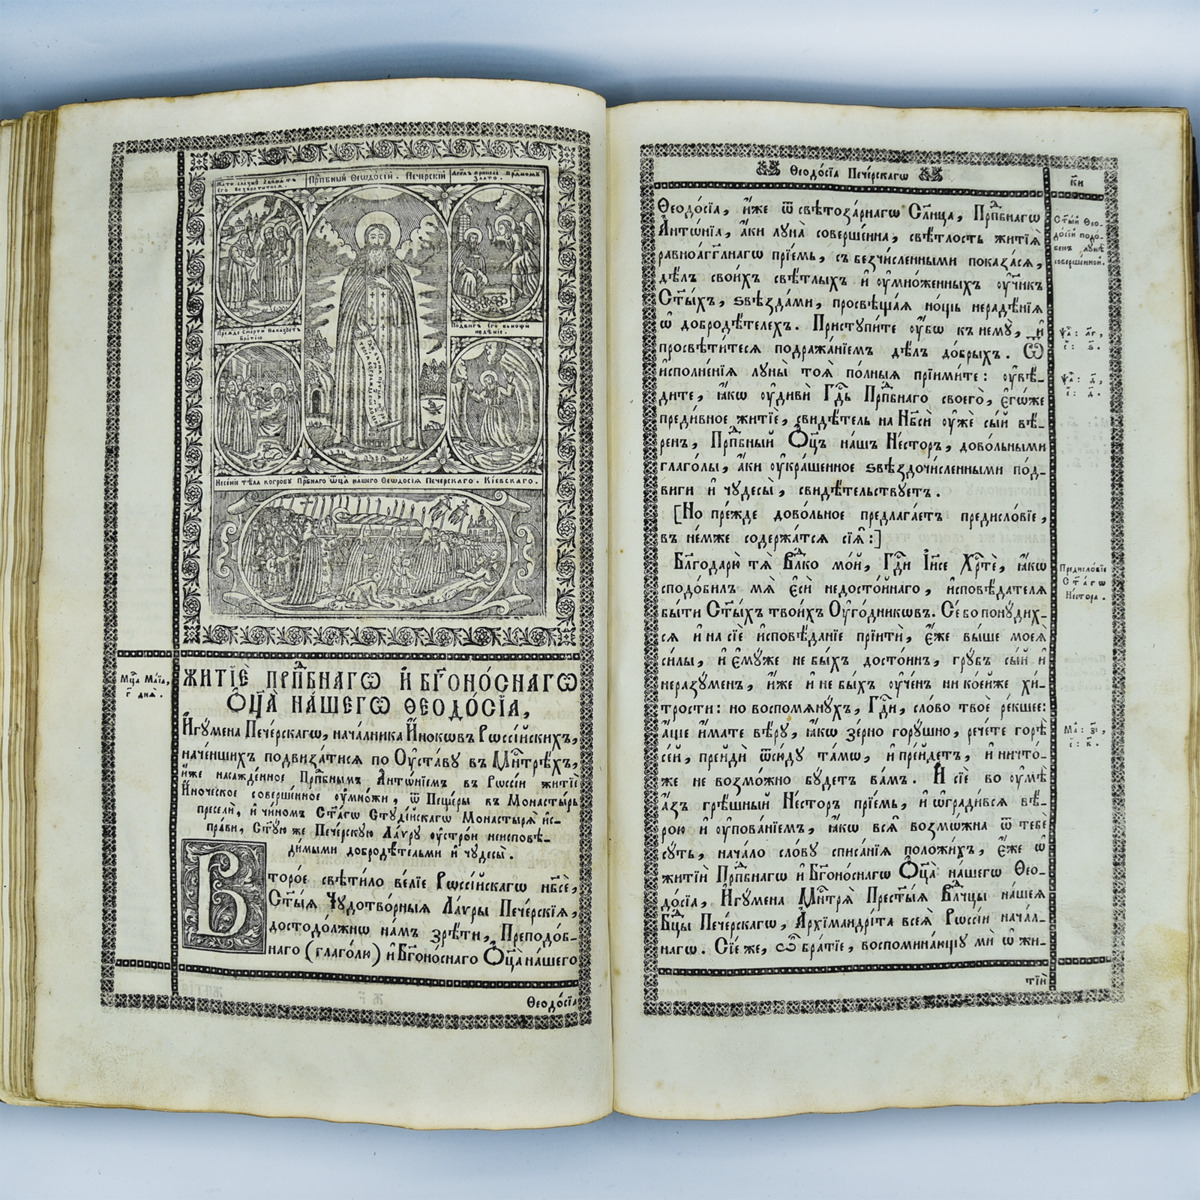 Прпⷣбный Ѳеодосїй. Печерскїй
Прежде Смерти Наказꙋетъ
Братїю
Несенїе тѣла ко гробꙋ Прпⷣбнаго Ѻц҃а нашего Ѳеодосїа Печерскаго. Кїевскаго.
Мц҃а Маїа,
г҃ дня.
ЖИТЇЀ ПРПⷣБНАГѠ И҆ БГ҃ОНО́СНАГѠ
Ѻ҆Ц҃А̀ НА́ШЕГѠ ѲЕОДО́СЇА,
И҆гꙋмена Пече́рскагѡ, нача́лника И҆́нокѡвъ Рѡссі́йскихъ,
наче́нших подвиза́тися по Оу҆ста́вꙋ въ Мн҃трѣ́хъ,
и҆́же насажде́нное Прпⷣбнымъ Анто́нїемъ въ Рѡссі́и житїѐ
И҆́ноческое соверше́нное оу҆мно́жи, ѿ Пеще́ры въ Монасты́рь
пресели́, и҆ чи́номъ Ст҃а́гѡ Стꙋді́йскагѡ Монастыря̀ и҆с-
пра́ви, Ст҃ꙋ́ю же Пече́рскꙋю Ла́врꙋ оу҆стро́и неисповѣ-
ди́мыми добродѣ́тельми и҆ чꙋдесы̀.
Второ́е свѣти́ло ве́лїе Рѡссі́йскагѡ нб҃сѐ,
Ст҃ы́ѧ Чꙋдотво́рныѧ Ла́вры Пече́рскїѧ,
досто́должнѡ на́мъ зрѣ́ти, Преподо́б-
наго (глаго́лю) и҆ Бг҃оно́снаго Ѻ҆ц҃а̀ на́шего
Ѳеодо́сїа
Ѳеодо́сїа Пече́рскагѡ
к҃и
Ѳеодо́сїа, и҆́же ѿ свѣтоза́рнагѡ Сл҃нца, Прпⷣбнагѡ
Анто́нїа, а҆́ки лꙋна̀ соверше́нна, свѣ́тлость житїѧ̀
равноа́гг҃лнагѡ прїе́мь, съ безчи́сленными показа́сѧ,
дѣ́лъ свои́хъ свѣ́тлыхъ и҆ оу҆мно́женныхъ оу҆чн҃къ
Ст҃ы́хъ, ѕвѣзда́ми, просвѣща́ѧ но́щь нерадѣ́нїѧ
ѡ҆ добродѣ́телехъ. Пристꙋпи́те оу҆́бѡ къ немꙋ̀, и҆
просвѣти́тесѧ подража́нїемъ дѣ́лъ до́брыхъ. Ѿ
и҆сполне́нїѧ лꙋны̀ тоѧ̀ по́лныѧ прїими́те: оу҆вѣ́-
дите, ꙗ҆́кѡ оу҆дивѝ Гд҃ь Прпⷣбнаго своего̀, є҆гѡ́же
преди́вное житїѐ, свидѣ́тель на Нб҃сѝ оу҆жѐ сы́й вѣ́-
ренъ, Прпⷣбный Ѻ҆ц҃ъ на́шъ Не́сторъ, дово́льными
глаго́лы, а҆́ки оу҆кра́шенное ѕвѣздочи́сленными по́д-
виги и҆ чꙋдесы̀, свидѣ́тельствꙋетъ.
[Но пре́жде дово́льное предлага́етъ предисло́вїе,
въ не́мже содержа́тсѧ сїѧ̑:]
Блг҃одарю́ тѧ Влⷣко мо́й, Гдⷭ҇и І҆и҃се Хрⷭ҇тѐ, ꙗ҆́кѡ
сподо́билъ мѧ̀ є҆сѝ недосто́йнаго, и҆сповѣ́дателѧ
бы́ти Ст҃ы́хъ твои́хъ Оу҆го́дникѡвъ. Се́ бо понꙋди́х-
сѧ и҆ на сїѐ и҆сповѣ́данїе прїитѝ, є҆́же вы́ше моеѧ̀
си́лы, и҆ є҆мꙋ́же не бы́хъ досто́инъ, грꙋ́бъ сы́й и҆
неразꙋ́менъ, и҆́же и҆ не бы́хъ оу҆че́нъ ни ко́ейже хи́-
трости: но воспомѧнꙋ́хъ, Гдⷭ҇и, сло́во твоѐ ре́кшее:
а҆́ще и҆́мате вѣ́рꙋ, ꙗ҆́кѡ зерно̀ горꙋ́шно, рече́те горѣ̀
се́й, прейдѝ ѿсю́дꙋ та́мѡ, и҆ пре́йдетъ, и҆ ничто́-
же не возмо́жно бꙋ́детъ ва́мъ. И҆ сїѐ во оу҆мѣ̀
а҆́зъ грѣ́шный Не́сторъ прїе́мь, и҆ ѡ҆гради́всѧ вѣ́-
рою и҆ оу҆пова́нїемъ, ꙗ҆́кѡ всѧ̑ возмѡ́жна ѿ тебѐ
сꙋ́ть, нача́ло сло́вꙋ списа́нїѧ положи́хъ, є҆́же ѡ҆
житїи Прпⷣбнагѡ и҆ Бг҃оно́снагѡ Ѻ҆ц҃а̀ на́шегѡ Ѳео-
до́сїа, И҆гꙋ́мена Мн҃трѧ̀ Прест҃ы́ѧ Влⷣчцы на́шеѧ
Бц҃ы Пече́рскагѡ, А҆рхїмандрі́та всеѧ̀ Рѡссі́и нача́л-
нагѡ. Сїе́ же, ѽ бра́тїе, воспомина́ющꙋ мѝ ѡ҆ жи-
тїи
Ст҃ый Ѳео-
до́сїй подо-
бенъ лꙋнѣ
соверше́нной.
Предисло́вїе
Ст҃а́гѡ
Не́стора.